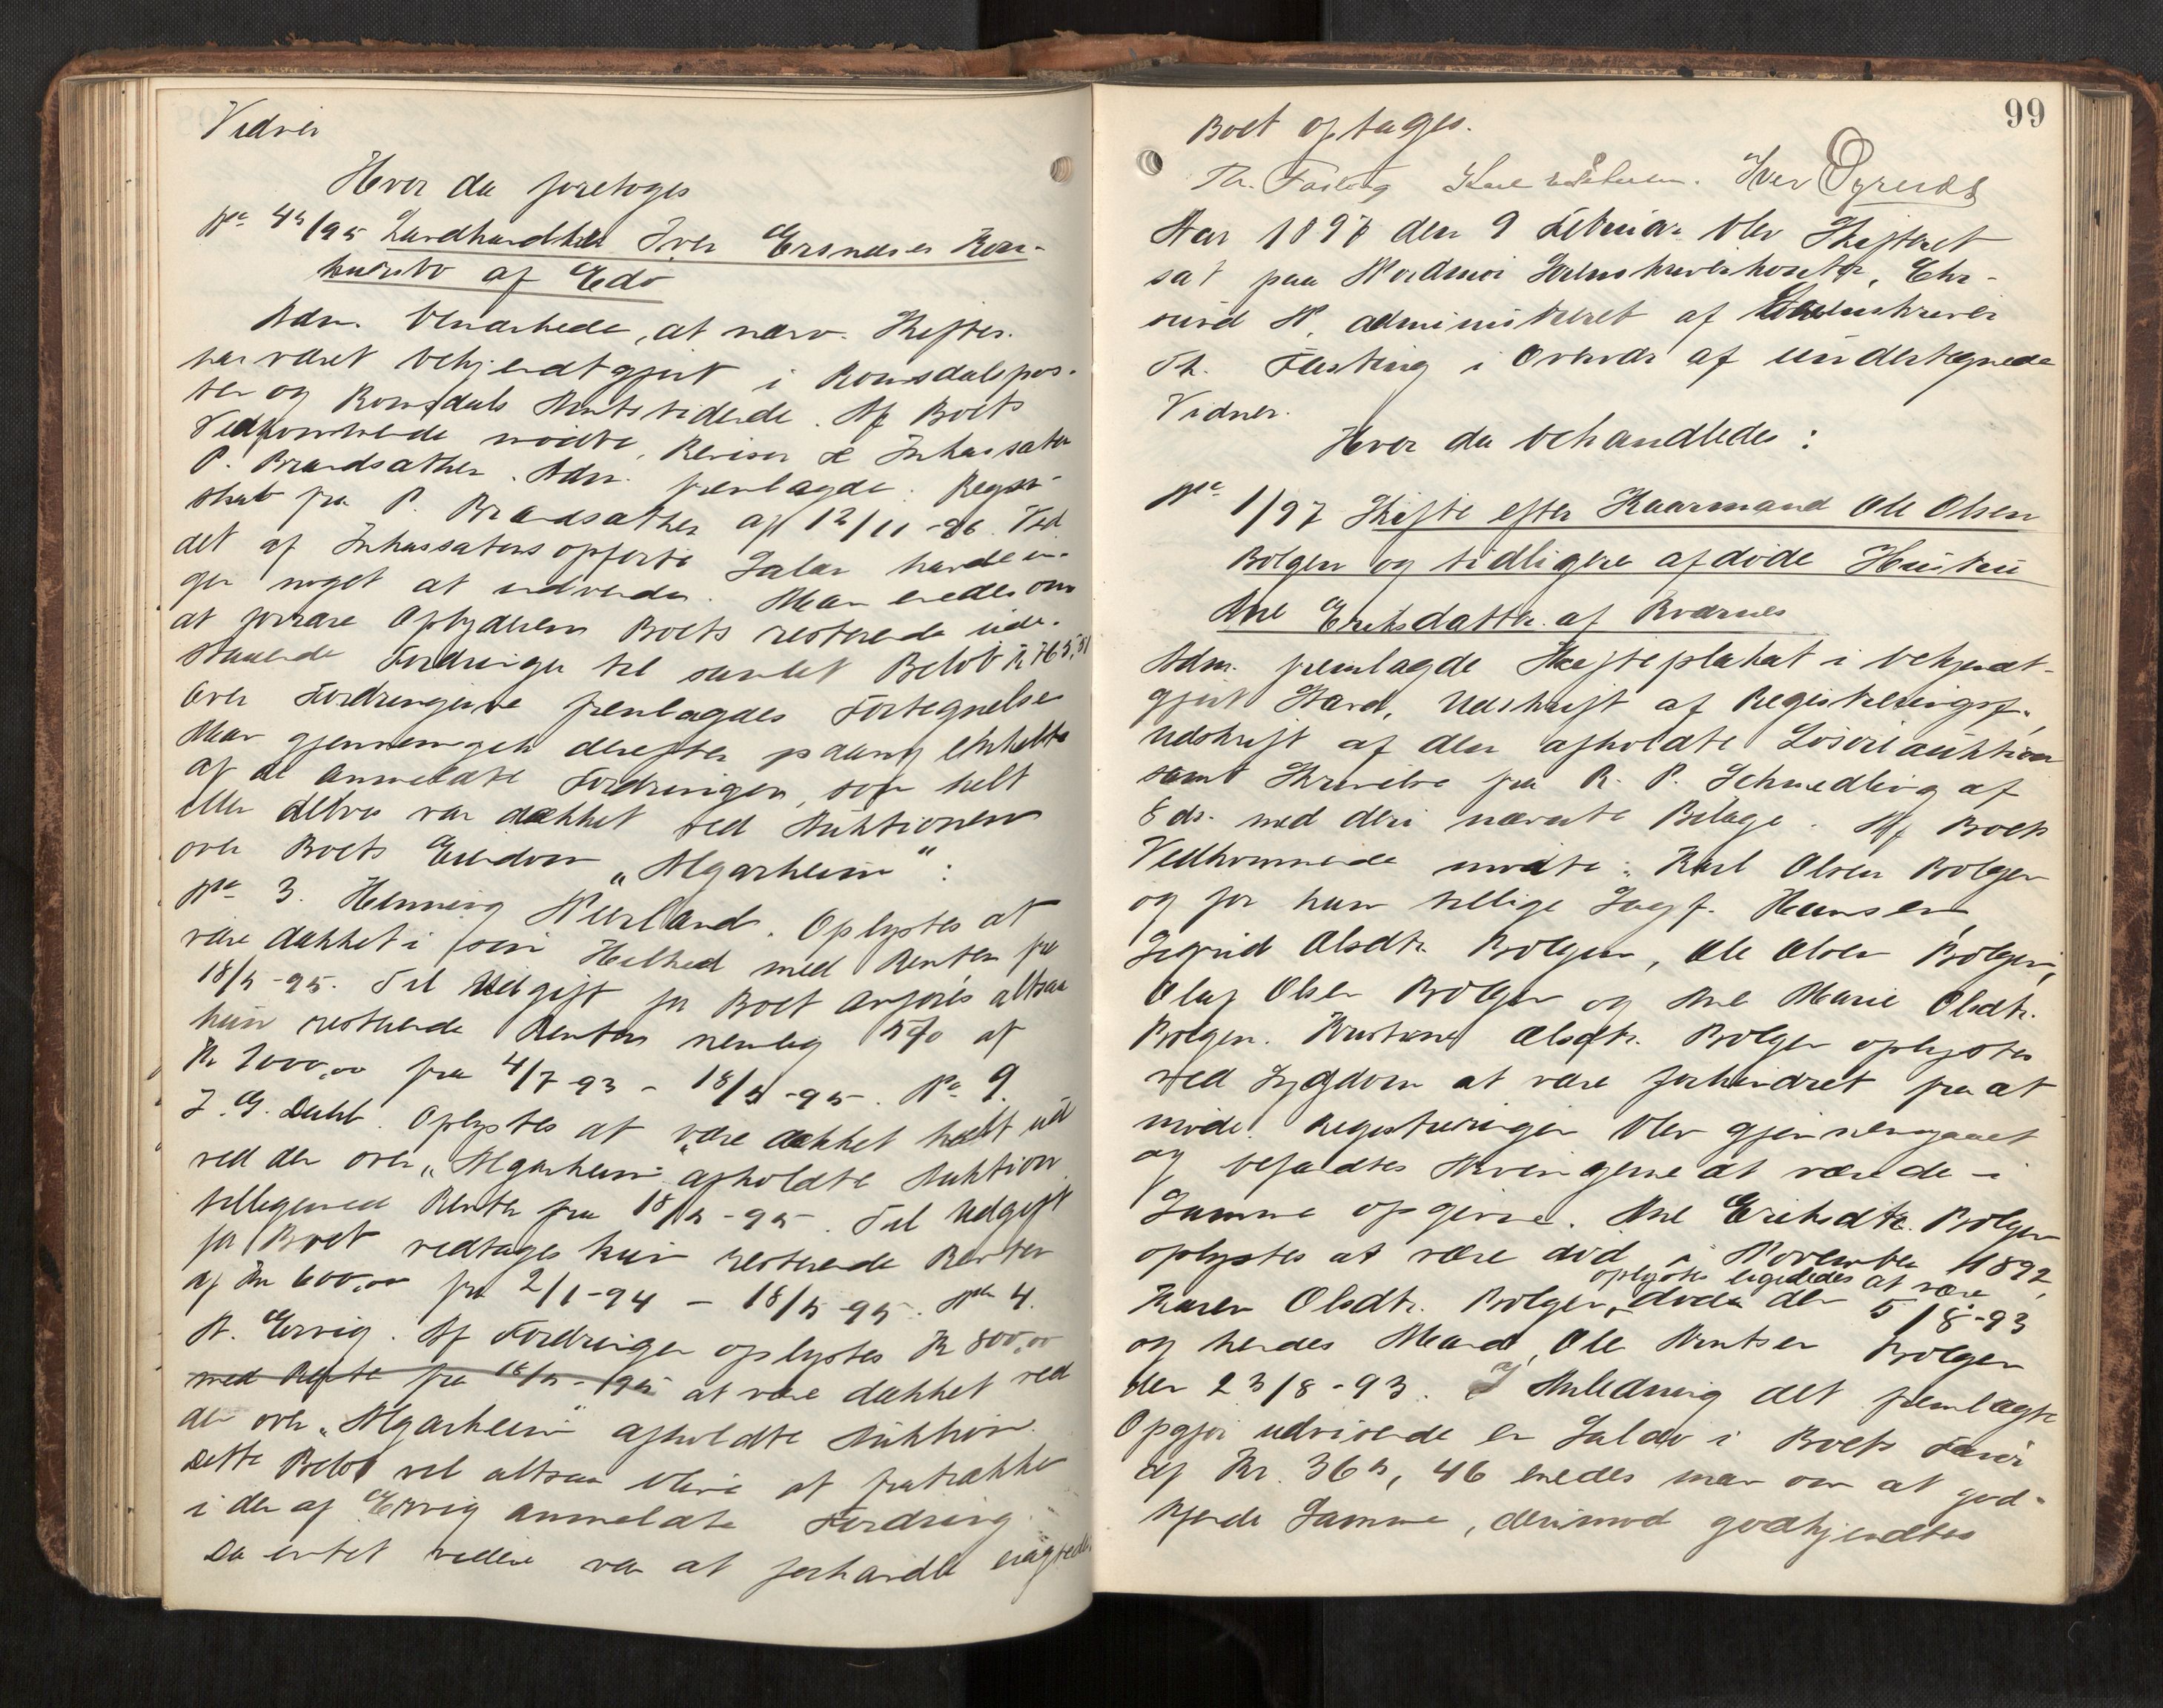 Vidner
Hvor da foretoges
No 45/95 Landhandler Iver Ersnæses Kon-
kursbo af Edø
Adm. bemærkede, at nærv. Skiftes.
har været bekjendtgjort i Romsdalspos-
ten og Romsdals Amtstidende. Af Boets
Vedkommende mødte, Revisor & Inkassator
P. Brandsæther. Adm. fremlagde: Regn-
skab fra P. Brandsæther af 12/11-96. Ved
det af Inkassators opførte Salær havde in-
gen noget at indvende. Man enedes om
at forære Opbyderen Boets resterende ude-
staaende Fordringer til samlet Beløb Kr 765,51
Over Fordringerne fremlagdes Fortegnelse
Man gjennemgik derefter paany enkelte
af de anmeldte Fordringer, som helt
eller delvis var dækket ved Auktionen
over Boets Eiendom „Algarheim":
No 3. Henning Neerland. Oplystes at
være dækket i sin Helhed med Renter fra
18/5-95. Til Udgift for Boet anføres altsaa
kun resterende Renter nemlig 5% af
Kr 1000,00 fra 4/7 93 - 18/5-95. No 9.
J. G. Dahl. Oplystes at være dækket helt ud
ved den over „Algarheim" afholdte Auktion
tilligemed Renter fra 18/5-95. Til Udgift
for Boet vedtages kun resterende Renter
af Kr 600,00 fra 2/1-94 - 18/5-95. No 4.
A. Ervig. Af Fordringen oplystes Kr 800,00
med Rente fra 18/5-195 at være dækket ved
den over „Algarheim" afholdte Auktion.
Dette Beløb vil altsaa blive at fratrække
i den af Ervig anmeldte Fordring.
Da intet videre var at forhandle
99
Boet optages.
Th. Fasting Iver Øyrends
Aar 1897 den 9 Februar blev Skifteret
sat paa Nordmør Sorenskriverkontor, Chr-
sund N. administreret af Sorenskriver
Th. Fasting i Overvær af undertegnede
Vidner.
Hvor da behandledes:
No 1/97 Skifte efter Kaarmand Ole Olsen
Bolgen og tidligere afdøde Hustru
Ane Eriksdatter af Bværnes
Adm. fremlagde Skifteplakat i bekjendt-
gjort Stand, Udskrift af Registreringsf.,
Udskrift af den afholdte Løsøreauktion
samt Skrivelse fra R. P. Schmedling af
8 ds. med deri nævnte Bilage. Af Boets
Vedkommende mødte: Karl Olsen Bolgen
og for ham tillige Sagf. Hansen,
Sigrid Olsdtr. Bolgen, Ole Olsen Bolgen,
Olaf Olsen Bolgen og Ane Marie Olsdtr.
Bolgen. Kristine Olsdtr. Bolgen oplystes
ved Sygdom at være forhindret fra at
møde. Registreringen blev gjennemgaaet
og befandtes Arvingerne at være de i
Samme opgivne. Ane Eriksdtr. Bolgen
oplystes at være død i November 1892,
oplystes ligeledes at være
Karen Olsdtr. Bolgen, døde den 5/8-93
og hendes Mand, Ole Knutsen Bolgen
den 23/8-93. I Anledning af det fremlagte
Opgjør udvisende en Saldo i Boets Favør
af Kr. 365,46 enedes man om at god-
kjende Samme, derimod godkjendtes